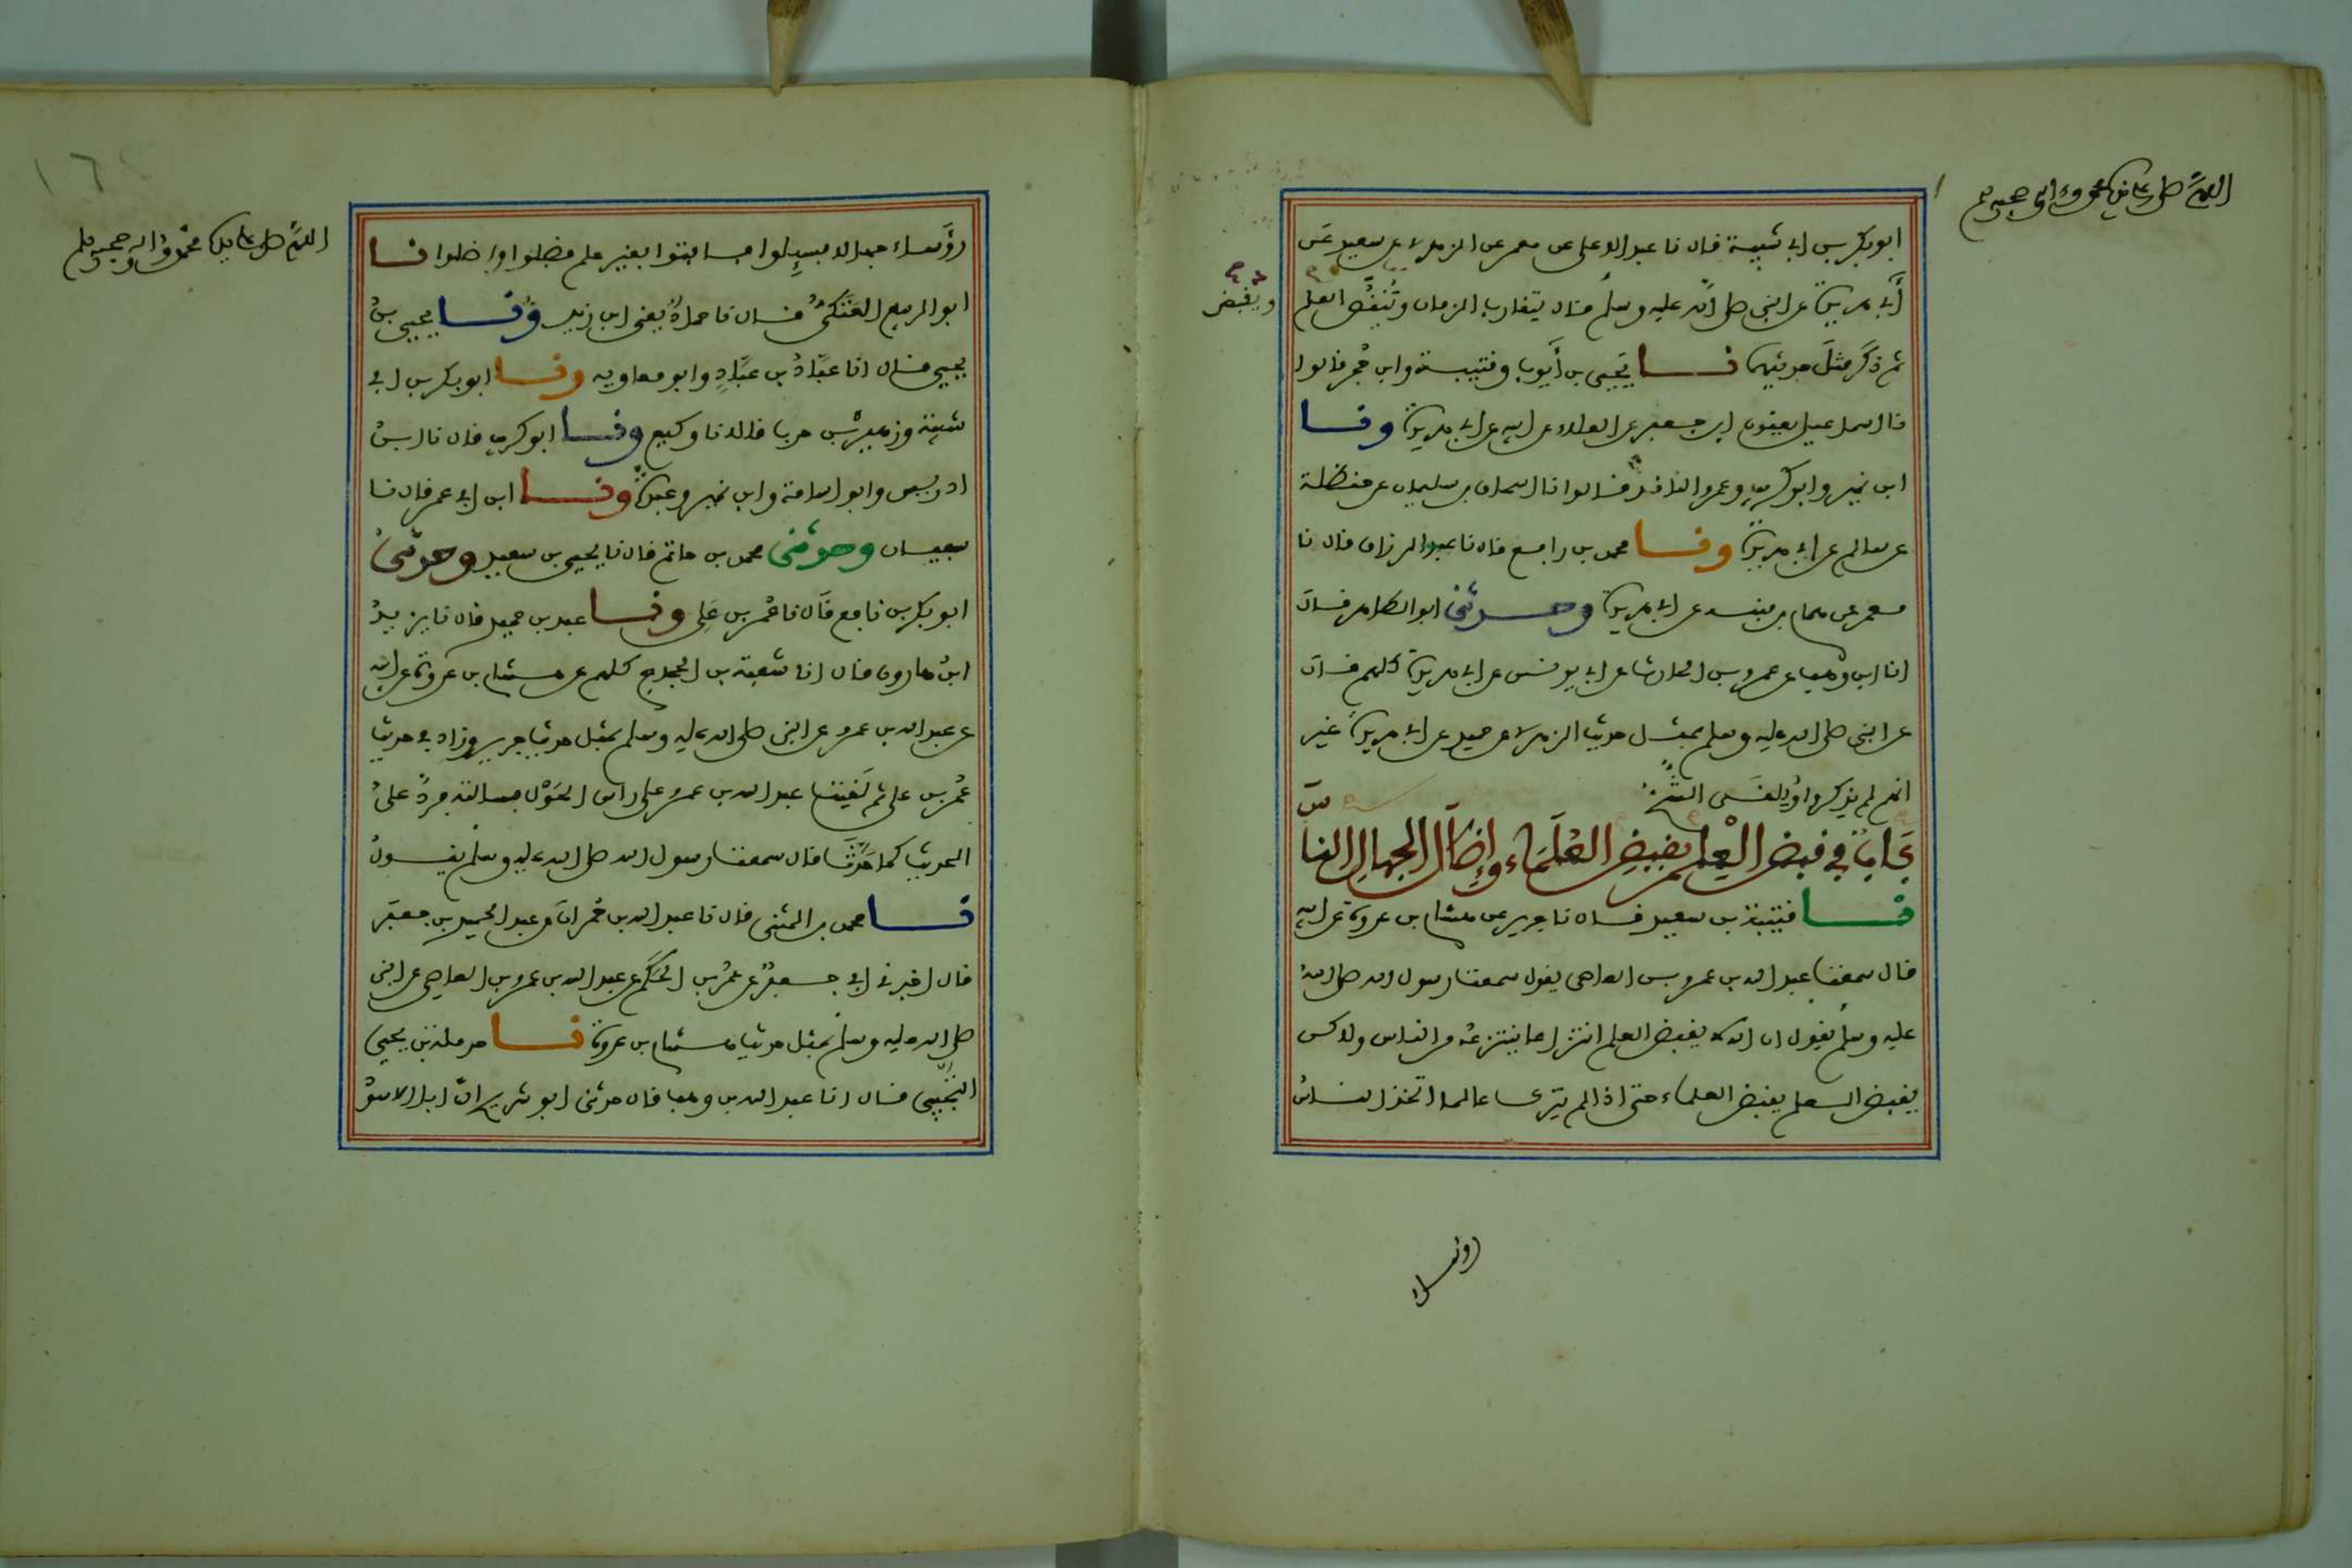 اللهم صل على سيدنا محمد وءاله وصحبه وسلم
ابو بكر بن ابي شيبة قال نا عبد الاعلى عن معمر عن الزهري عن سعيد عن
أبي هريرة عن النبي صلى الله عليه وسلم قال يتقارب الزمان وينقص العلم
ويقبض
ثم ذكر مثل حديثهما نا يحيى بن أيوب وقتيبة وابن حجر قالوا
نا اسماعيل يعنون ابن جعفر عن العلاء عن ابيه عن ابي هريرة ونا
ابن نمير وابو كريب وعمرو الناقد قالوا نا اسحاق بن سليمان عن حنظلة
عن سالم عن ابي هريرة ونا محمد بن رافع قال نا عبد الرزاق قال نا
معمر عن همام بن منبه عن ابي هريرة وحدثني ابو الطاهر قال
انا ابن وهب عن عمرو بن الحارث عن ابي يونس عن ابي هريرة كلهم قال
عن النبي صلى الله عليه وسلم بمثل حديث الزهري عن حميد عن ابي هريرة غير
انهم لم يذكروا ويلقى الشح
باب في قبض العلم بقبض العلماء وإضلال الجهال الناس
نا قتيبة بن سعيد قال نا جرير عن هشام بن عروة عن ابيه
قال سمعت عبد الله بن عمرو بن العاصي يقول سمعت رسول الله صلى الله
عليه وسلم يقول ان الله لا يقبض العلم انتزاعا ينتزعه من الناس ولاكن
يقبض العلم بقبض العلماء حتى اذا لم يترك عالما اتخذ الناس
رؤساء
اللهم صل على سيدنا محمد وءاله وصحبه وسلم
رؤساء جهالا فسيلوا فافتوا بغير علم فضلوا واضلوا نا
ابو الربيع العتكي قال نا حماد يعني ابن زيد ونا يحيى بن
يحيى قال انا عباد بن عباد وابو معاويه ونا ابو بكر بن ابي
شيبة وزهير بن حرب قالا نا وكيع ونا ابو كريب قال نا ابن
ادريس وابو اسامة وابن نمير وعبدة ونا ابن ابي عمر قال نا
سفيان وحدثني محمد بن حاتم قال نا يحيى بن سعيد وحدثني
ابو بكر بن نافع قال نا عمر بن علي ونا عبد بن حميد قال نا يزيد
ابن هارون قال انا شعبة بن الحجاج كلهم عن هشام بن عروة عن ابيه
عن عبد الله بن عمرو عن النبي صلى الله عليه وسلم بمثل حديث جرير وزاد في حديث
عمر بن علي ثم لقيت عبد الله بن عمرو على راس الحول فسالته فرد على
الحديث كما حدث قال سمعت رسول الله صلى الله عليه وسلم يقول
نا محمد بن المثنى قال نا عبد الله بن حمران عن عبد الحميد بن جعفر
قال اخبرني ابي جعفر عن عمر بن الحكم عن عبد الله بن عمرو بن العاصي عن النبي
صلى الله عليه وسلم بمثل حديث هشام بن عروة نا حرملة بن يحيى
التجيبي قال انا عبد الله بن وهب قال حدثني ابو شريح ان ابا الاسود